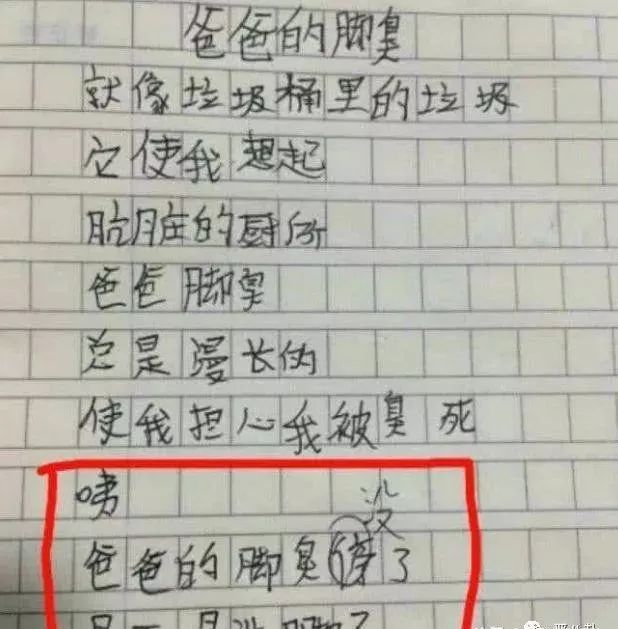 爸爸的脚臭
就像垃圾桶里的垃圾
它使我想起
肮脏的厕所
爸爸脚臭
总是漫长的
使我担心我被臭死
咦
没
爸爸的脚臭停了